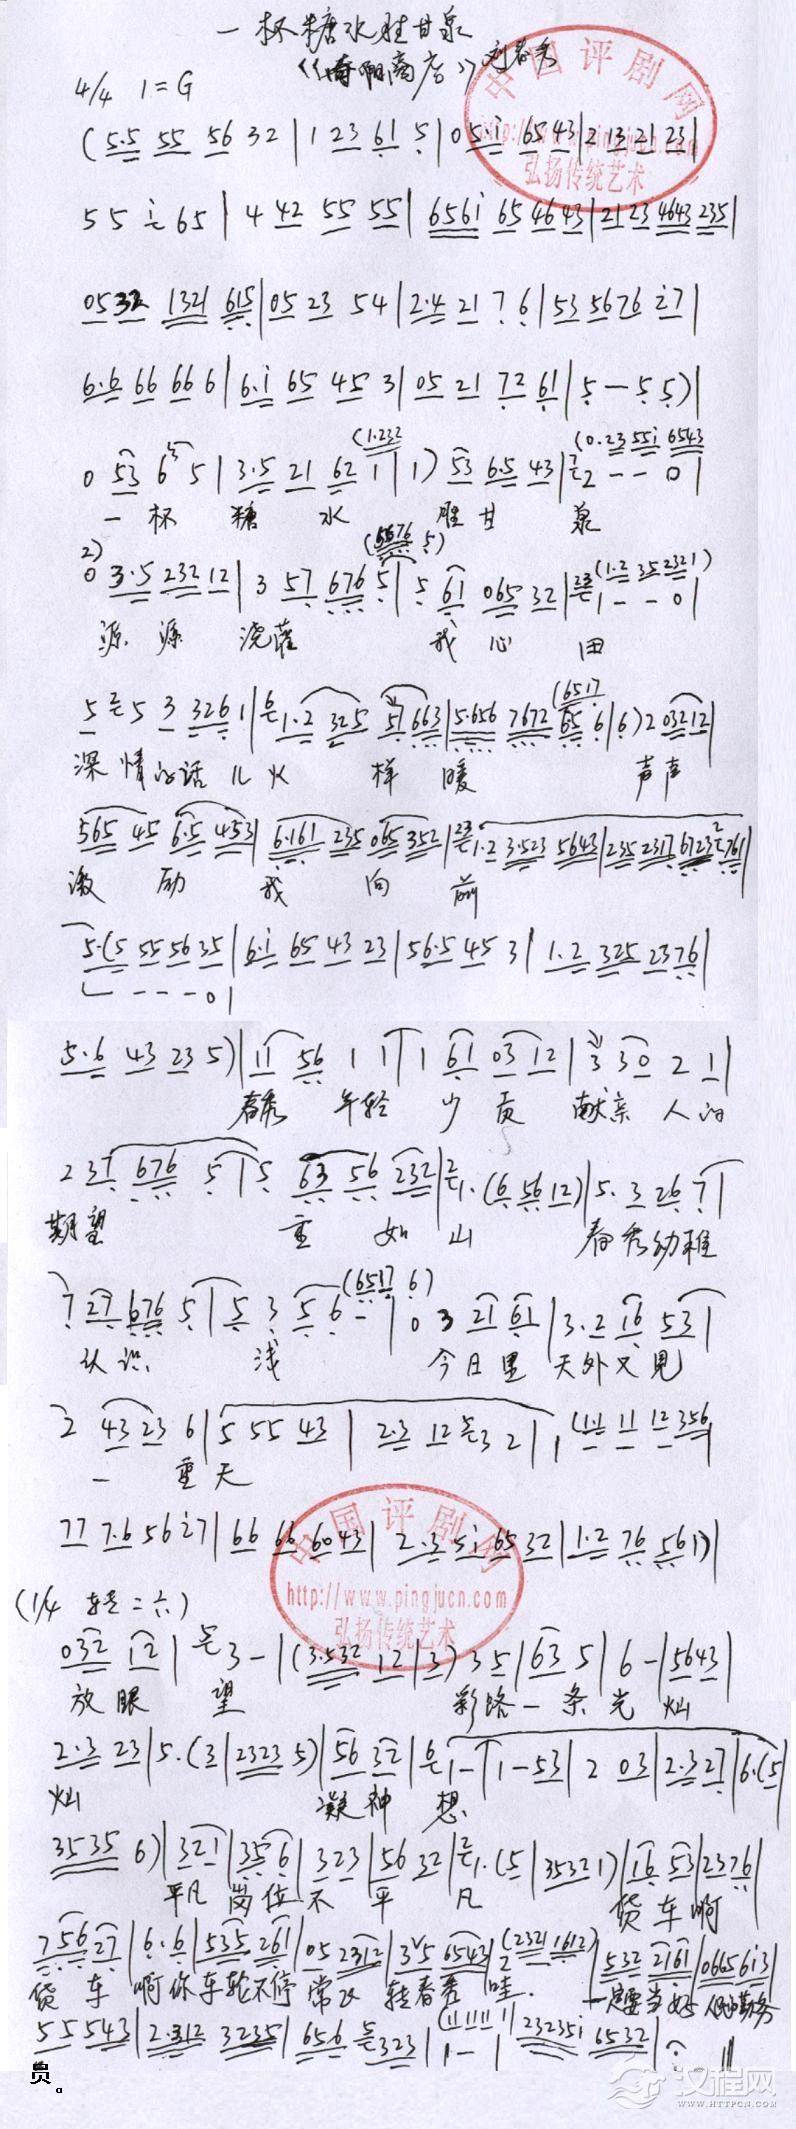 一杯糖水胜甘泉
刘春秀
4/4 1=G
中国评剧网
http://www.pingjucn.com
弘扬传统艺术
(5.5 55 56 32 | 1 23 61 5 | 0 5.i 65 43 | 2 13 21 23 |
5 5 i 65 | 4 42 55 55 | 656i 65 46 43 | 21 23 4643 235 |
05 32 1321 615 | 05 23 54 | 2.4 21 7 6 | 53 5676 i7 |
6.6 66 66 6 | 6.i 65 45 3 | 05 21 72 61 | 5 — 5 5) |
(1.232 (0.23 55i 6543
0 53 6 5 | 3.5 21 62 1 | 1) 53 6.5 43 | 2 - - 0 |
一 杯 糖 水 胜 甘 泉
2) (5676 5) (1.2 35 2321)
0 3.5 232 12 | 3 57 676 5 | 5 61 065 32 | 1 - - 0 |
源 源 浇灌 我 心 田
(6517
5 5 3 326 1 | 1.2 325 5 663 | 5.656 7672 65 6 | 6) 2 03212 |
深 情的话 儿 火 样 暖 声声
565 45 6.5 453 | 6.161 235 065 352 | 1.2 3.523 5643 | 235 2317 6723 761 |
激 励 我 向 前
5.(5 55 56 35 | 6.i 65 43 23 | 56.5 45 3 | 1.2 325 2376 |
1 - - - 0 |
5.6 43 23 5) | 11 56 1 1 | 1 61 03 12 | 3 30 2 1 |
春秀 年轻 少 贡 献亲 人的
2 37 676 5 | 5 63 56 232 | 1.(6 56 12) | 5. 3 26 7 |
期望 重 如 山 春秀幼稚
(6517 6)
7 27 676 5 | 5 3 5 6 - | 0 3 21 61 | 3.2 16 53 |
认识 浅 今日里 天外又见
2 43 23 6 | 5 55 43 | 2.3 12 3 2 | 1 (11 11 12 356 |
一 重天
77 7.6 56 i7 | 66 66 6043 | 2.3 5i 65 32 | 1.2 76 561) |
中国评剧网
http://www.pingjucn.com
弘扬传统艺术
(1/4 转=六)
032 12 | 3 - | (3.532 12 | 3) 35 | 63 5 | 6 - | 5643 |
放眼 望 彩路一条光 灿
2.3 23 | 5.(3 | 2323 5) | 56 32 | 1 - | 1 - 53 | 2 03 | 2.327 | 6.(5 |
灿 凝神 想
3535 6) | 321 | 35 6 | 323 | 56 32 | 1.(5 | 35321) | 16 53 | 2376 |
平凡 岗位不 平 凡 货车啊
756 27 | 6.6 | 535 261 | 05 2312 | 35 6543 | 2 (2321 1612) | 532 2161 | 0665 6i3 |
货 车 啊你车轮不停 常 转春秀 哇 一定要当好
55 543 | 2.312 3235 | 656 323 | 1 - | (1111 1 | 23235i 6532 |
员。
汉程网
WWW.HTTPCN.COM